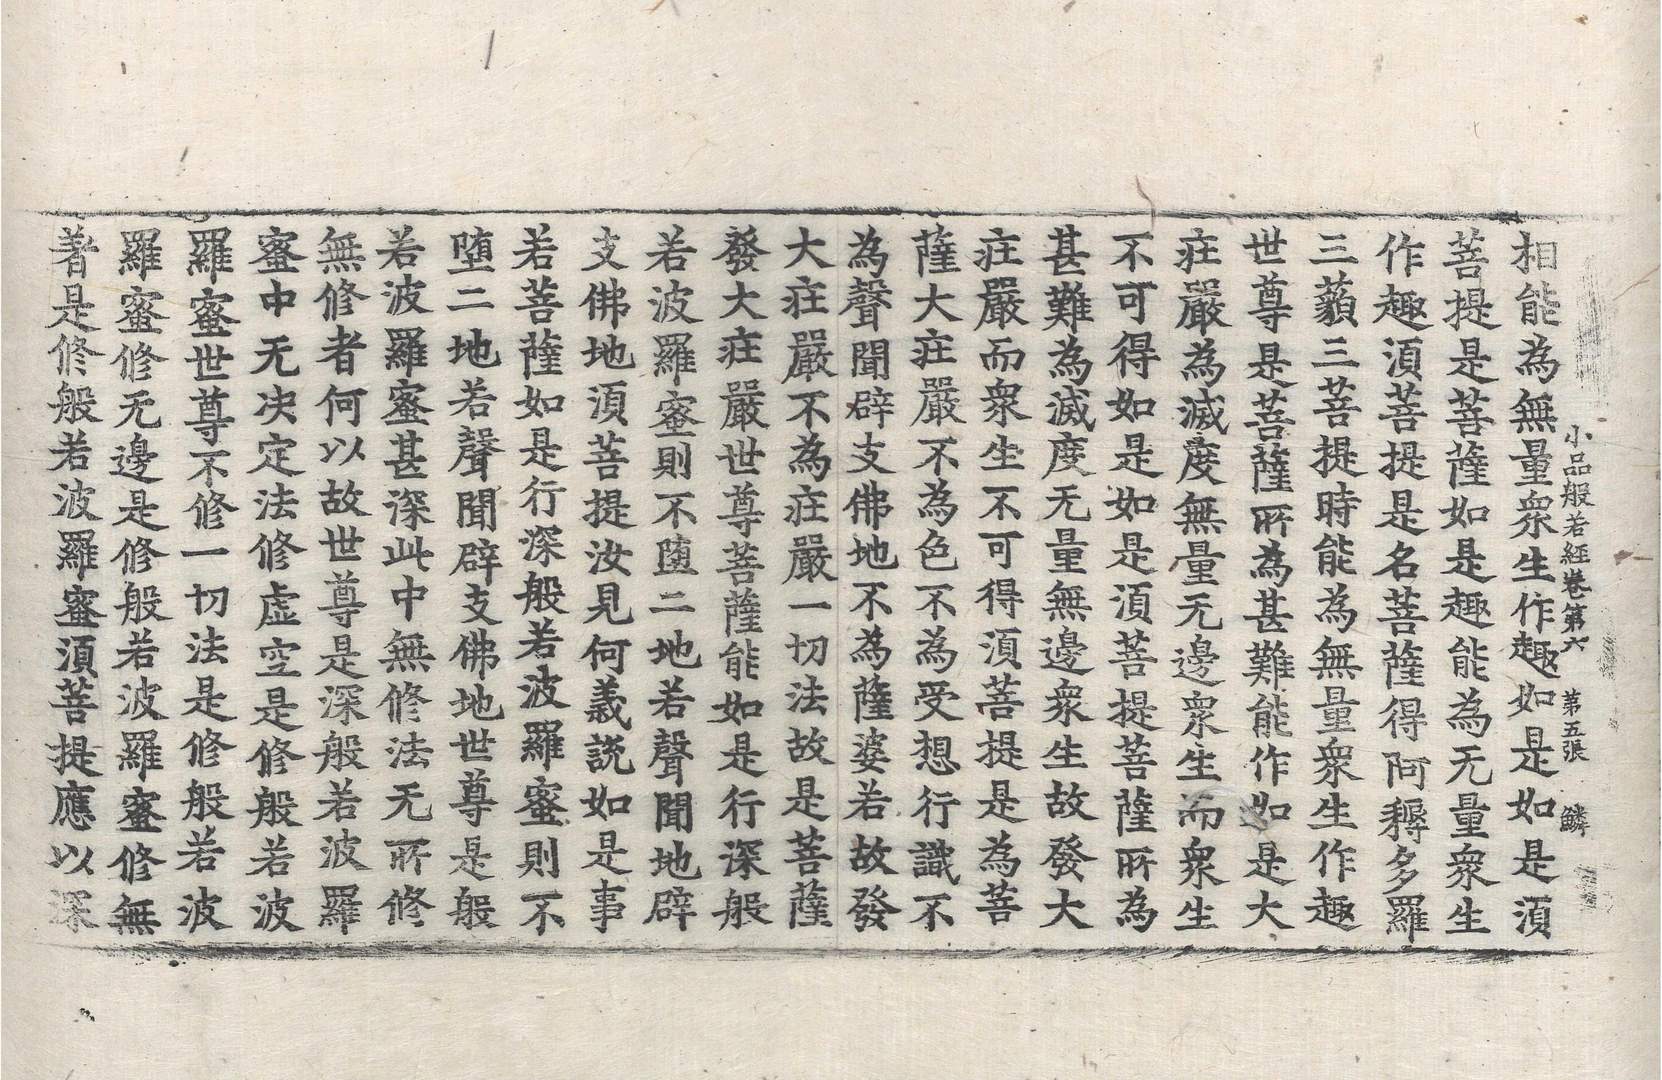 小品般若經卷第六 第五張 鱗
相能為無量眾生作趣如是如是須
菩提是菩薩如是趣能為无量眾生
作趣須菩提是名菩薩得阿耨多羅
三藐三菩提時能為無量眾生作趣
世尊是菩薩所為甚難能作如是大
莊嚴為滅度無量无邊眾生而眾生
不可得如是如是須菩提菩薩所為
甚難為滅度无量無邊眾生故發大
莊嚴而眾生不可得須菩提是為菩
薩大莊嚴不為色不為受想行識不
為聲聞辟支佛地不為薩婆若故發
大莊嚴不為莊嚴一切法故是菩薩
發大莊嚴世尊菩薩能如是行深般
若波羅蜜則不墮二地若聲聞地辟
支佛地須菩提汝見何義說如是事
若菩薩如是行深般若波羅蜜則不
墮二地若聲聞辟支佛地世尊是般
若波羅蜜甚深此中無修法无所修
無修者何以故世尊是深般若波羅
蜜中无决定法修虛空是修般若波
羅蜜世尊不修一切法是修般若波
羅蜜修无邊是修般若波羅蜜修無
著是修般若波羅蜜須菩提應以深